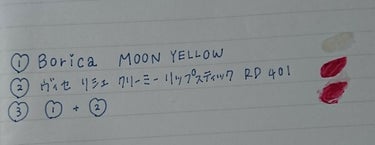 ① Borica MOON YELLOW
② ヴィセ リシェ クリーミーリップスティック RD 401
③ ① + ②